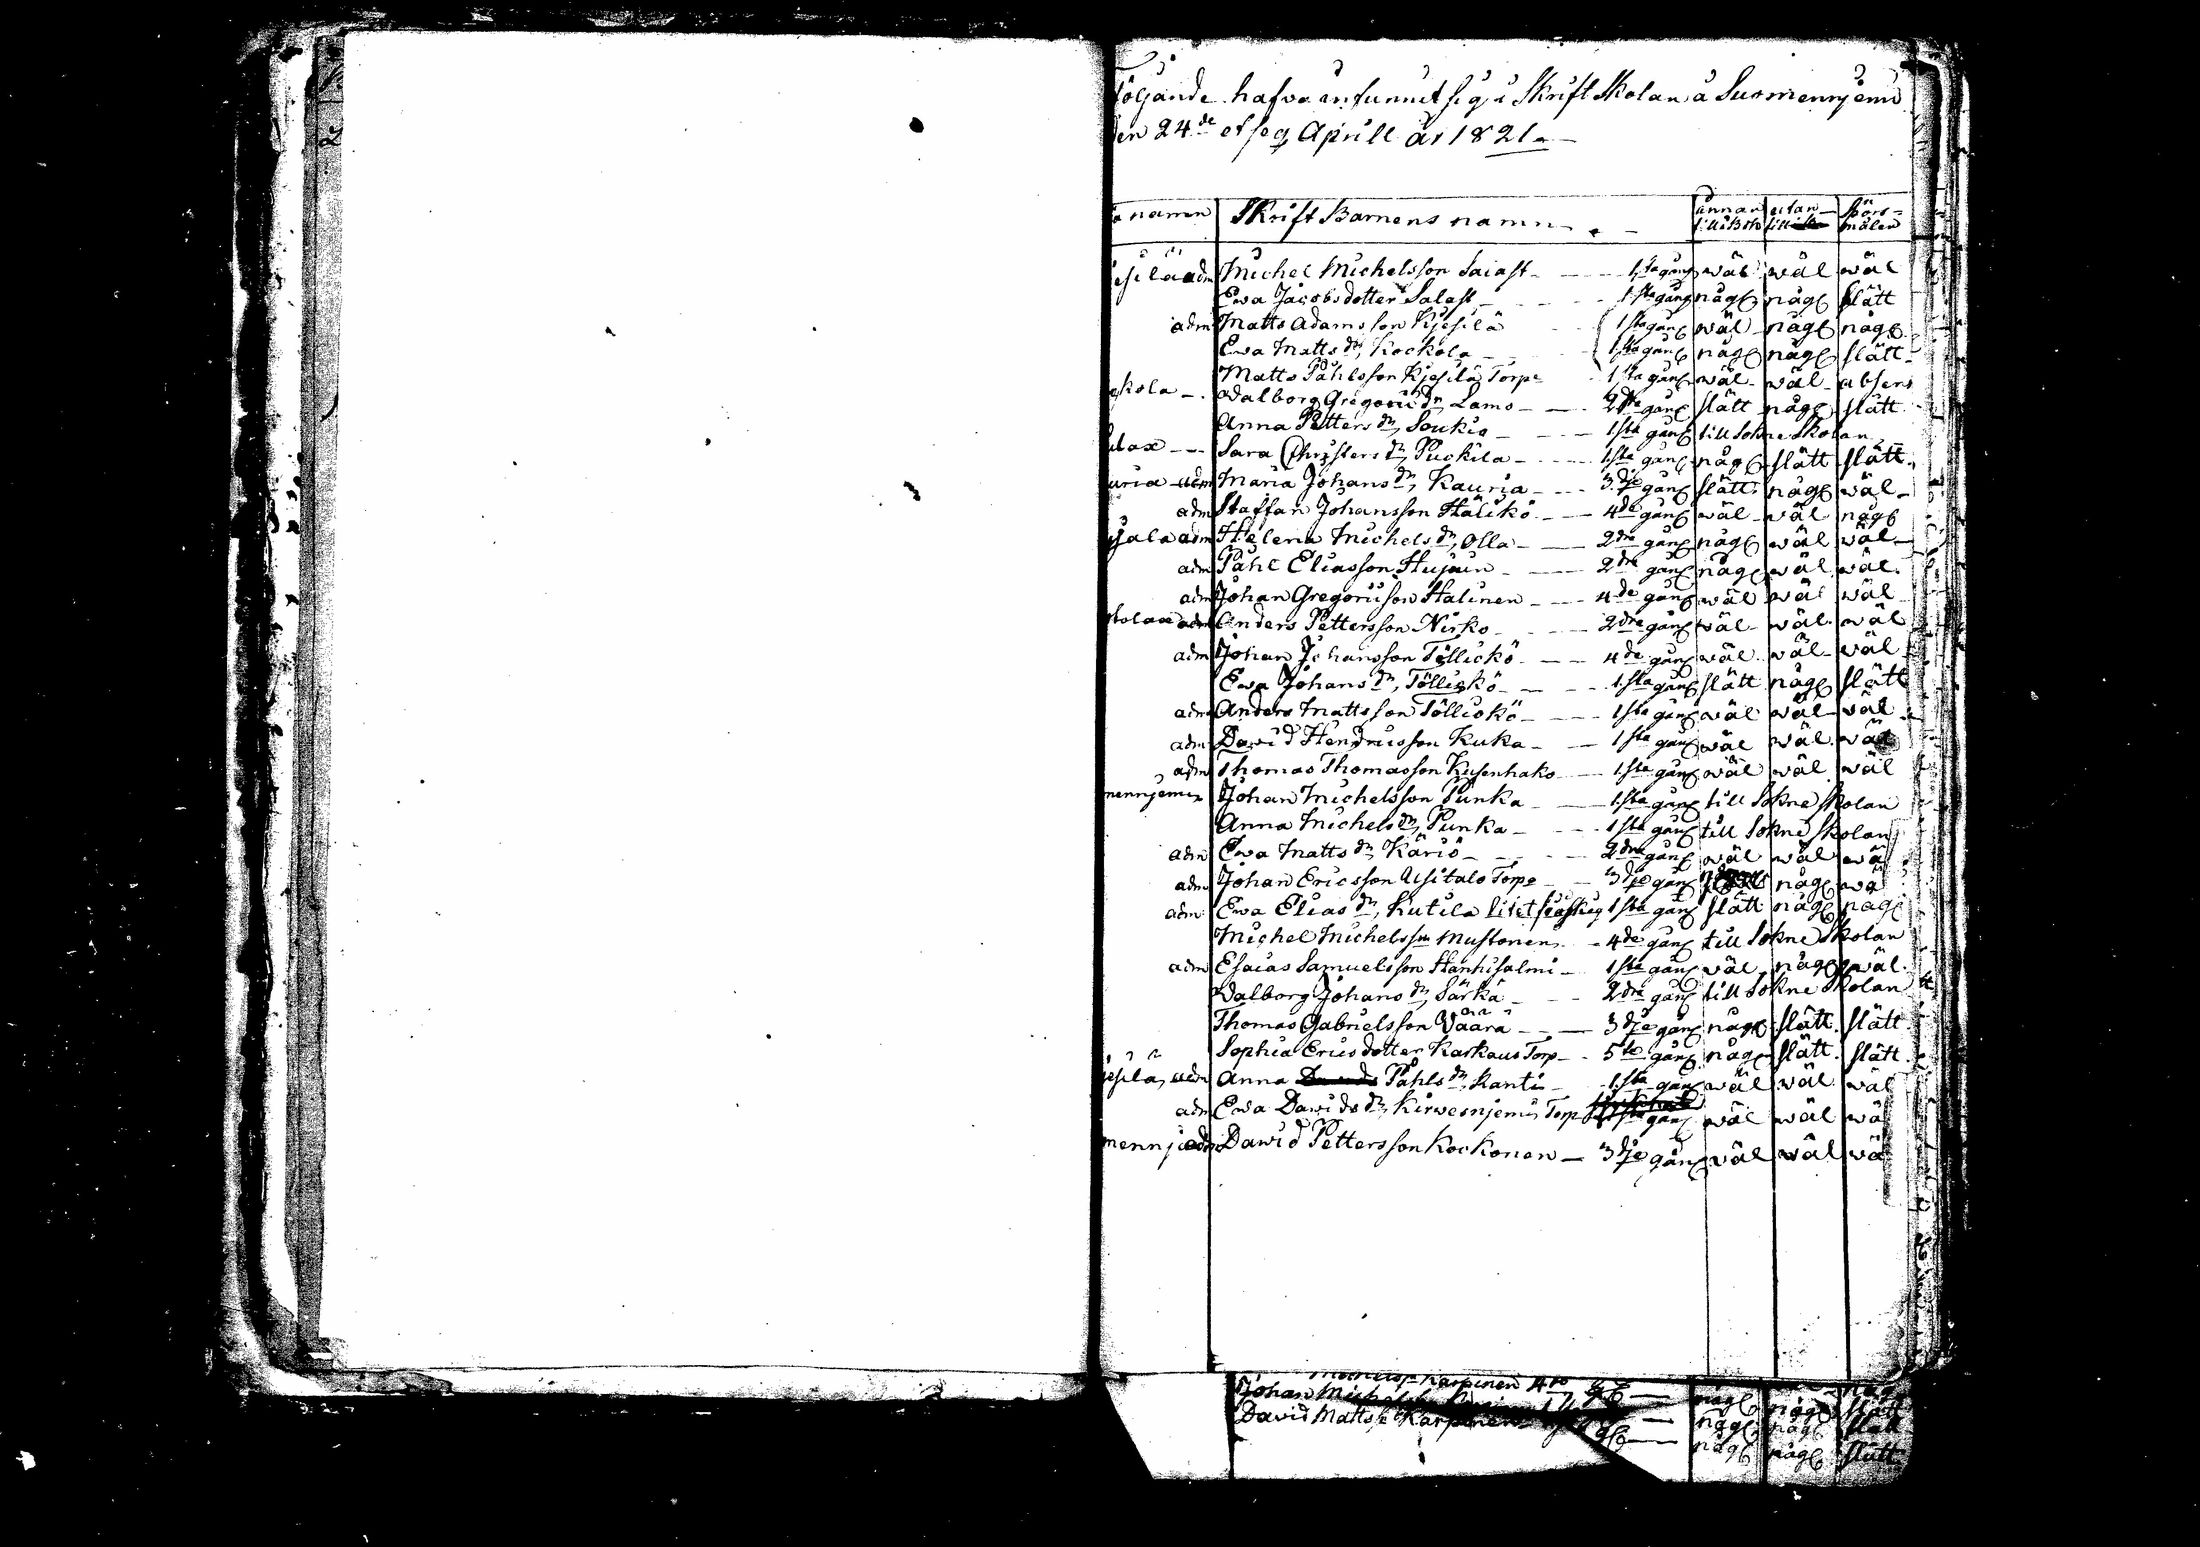 Följande hafva infunnit sig i Skrift Skolan å Suomennjemi
den 24de et seq, Aprill år 1821.
namn Skrift Barnens namn innan till utan till spörs-målen
adm Michel Michelsson Saiast 1sta gång wäl wäl wäl
Ewa Jacobsdotter Salast 1sta gång någ någ slätt
adm Matts Adamsson Kjesilä 1sta gång wäl någ någ
Ewa Matts dr, Kockola 1sta gång någ någ slätt
Matts Påhlsson Kjesilä Torp 1sta gång wäl wäl absens
Walborg Gregorii dr Lamo 2dra gång slätt någ slätt
Anna Petters dr, Soukia 1sta gång till Sokne Skolan
Sara Christers dr, Puckila 1sta gång någ slätt slätt
adm Maria Johans dr, Kauria 3dje gång slätt någ wäl
adm Staffan Johansson Hälikö 4de gång wäl wäl någ
adm Helena Michels dr, Olla 2dra gång någ wäl wäl
adm Påhl Eliasson Hujain 2dra gång någ wäl wäl
adm Johan Gregoriison Halinen 4de gång wäl wäl wäl
adm Anders Pettersson Nirko 2dra gång wäl wäl wäl
adm Johan Johansson Tölliskö 4de gång wäl wäl wäl
Ewa Johans dr, Tölliskö 1sta gång slätt någ slätt
adm Anders Mattsson Tölliskö 1sta gång wäl wäl wäl
adm David Hendricsson Kuka 1sta gång wäl wäl wäl
adm Thomas Thomasson Kusenhako 1sta gång wäl wäl wäl
mennjemi Johan Michelsson Punka 1sta gång till Sokne Skolan
Anna Michels dr, Punka 1sta gång till Sokne Skolan
adm Ewa Matts dr, Käriö 2dra gång wäl wäl wä
adm Johan Ericsson Usitalo Torp 3dje gång någ wä
adm Ewa Elias dr, Kutila litet 1sta gång slätt någ någ
Michel Michelsson Mustonen 4de gång till Sokne Skolan
adm Esaias Samuelsson Hanhisalmi 1sta gång wäl någ wäl
Walborg Johans dr, Särkä 2dra gång till Sokne Skolan
Thomas Gabrielsson Vaara 3dje gång någ slätt slätt
Sophia Ericsdotter Karkaus Torp 5te gång någ slätt slätt
adm Anna Påhls dr, Kanti 1sta gång wäl wäl wäl
adm Ewa Davids dr, Kirwesnjemi Torp 1sta gång wäl wäl wä
mennj adm David Pettersson Kockonen 3dje gång wäl wäl wä
Karpinen någ någ
Johan någ någ slätt
David Matts Karpinen någ någ slätt